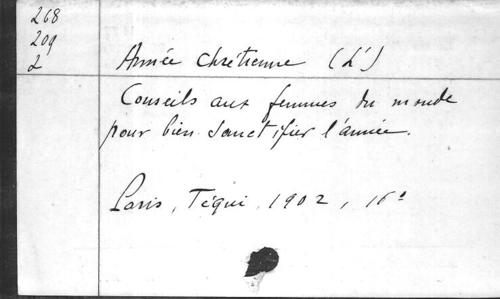 268
209
2
Année chrétienne (L')
Conseils aux femmes du monde
pour bien sanctifier l'année.
Paris, Téqui, 1902, 16°